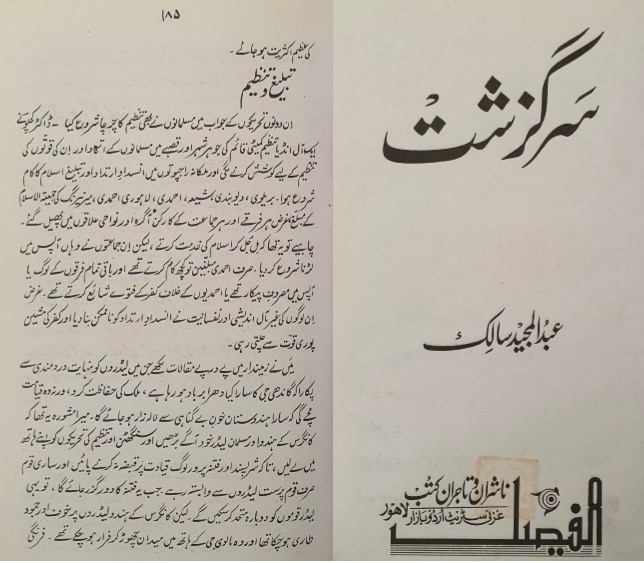 ۱۸۵
کی عظیم اکثریت ہو جائے۔
تبلیغ و تنظیم
ان دونوں تحریکوں کے جواب میں مسلمانوں نے بھی تنظیم کا چرچا شروع کیا ۔ ڈاکٹر کچلو نے
ایک آل انڈیا تنظیم کمیٹی قائم کی جو ہر شہر اور قصبے میں مسلمانوں کے اتحاد اور ان کی قوتوں کی
تنظیم کے لیے کوشش کرنے لگی اور ملکانہ راجپوتوں میں انسداد ارتداد اور تبلیغ اسلام کا کام
شروع ہوا۔ بریلوی، دیوبندی، شیعہ، احمدی، لاہوری احمدی، میر نیرنگ کی جمعیۃ الاسلام
کے مبلغ، غرض ہر فرقے اور ہر جماعت کے کارکن آگرہ اور نواحی علاقوں میں پھیل گئے۔
چاہیے تو یہ تھا کہ مل جل کر اسلام کی خدمت کرتے، لیکن ان جماعتوں نے وہاں آپس میں
لڑنا شروع کر دیا۔ صرف احمدی مبلغین تو کچھ کام کرتے تھے اور باقی تمام فرقوں کے لوگ یا
آپس میں مصروف پیکار تھے یا احمدیوں کے خلاف کفر کے فتوے شائع کرتے تھے۔ غرض
ان لوگوں کی غیر مآل اندیشی اور نفسانیت نے انسداد ارتداد کو ناممکن بنا دیا اور کفر کی مشین
پوری قوت سے چلتی رہی۔
میں نے زمیندار میں پے در پے مقالات لکھے جن میں لیڈروں کو نہایت دردمندی سے
پکارا کہ گاندھی جی کا سارا کیا دھرا برباد ہو رہا ہے، ملک کی حفاظت کرو، ورنہ وہ قیامت
مچے گی کہ سارا ہندوستان خون بے گناہی سے لالہ زار ہو جائے گا۔ میرا مشورہ یہ تھا کہ
کانگرس کے ہندو اور مسلمان لیڈر خود آگے بڑھیں اور سنگھٹن اور تنظیم کی تحریکوں کو اپنے ہاتھ
میں لے لیں، تاکہ شر پسند اور فتنہ پرور لوگ قیادت پر قبضہ نہ کرنے پائیں اور ساری قوم
صرف قوم پرست لیڈروں سے وابستہ رہے۔ جب یہ فتنہ کا دور گزر جائے گا، تو یہی
لیڈر قوموں کو دوبارہ متحد کر سکیں گے۔ لیکن کانگرس کے ہندو لیڈروں پر خوف اور جمود
طاری ہو چکا تھا اور وہ مالوی جی کے ہاتھ میں میدان چھوڑ کر فرار ہو چکے تھے۔ فرنگی
سرگزشت
عبدالمجید سالک
ناشران و تاجران کتب
غزنی سٹریٹ اردو بازار لاہور
الفیصل